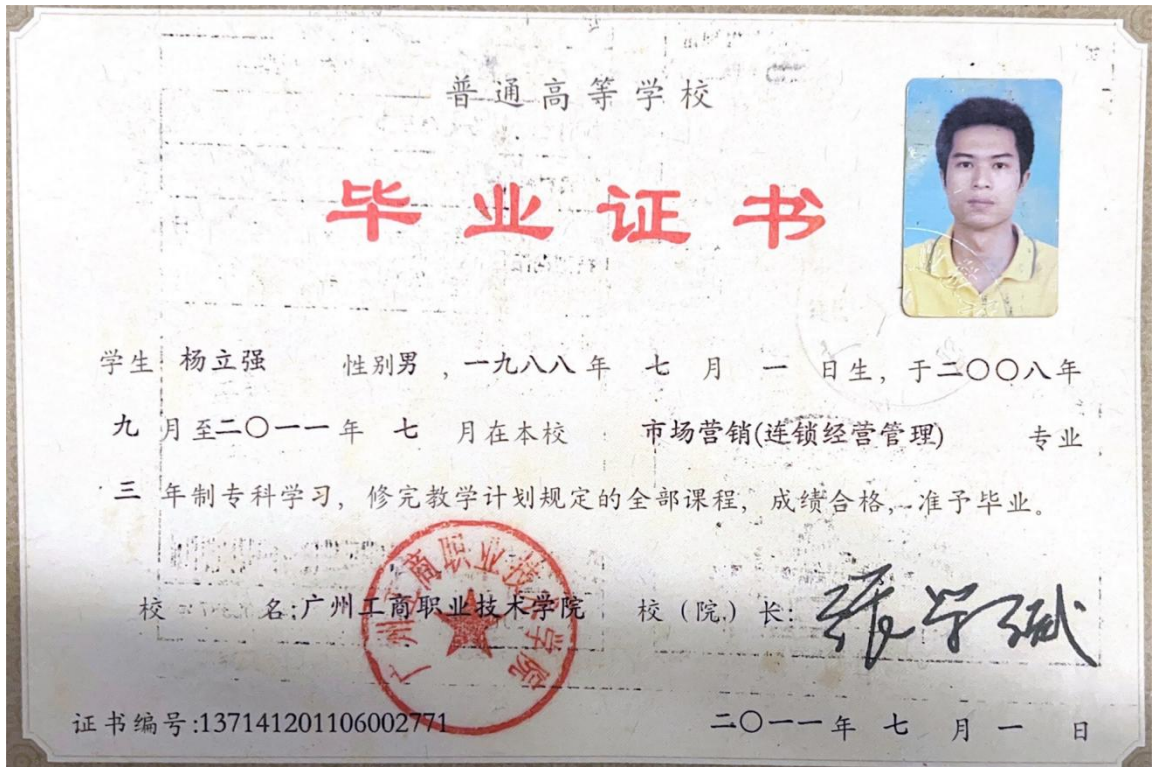 普通高等学校
毕业证书
学生 杨立强 性别男，一九八八年 七 月 一 日生，于二〇〇八年
九 月至二〇一一年 七 月在本校 市场营销(连锁经营管理) 专业
三 年制专科学习，修完教学计划规定的全部课程，成绩合格，准予毕业。
校 名:广州工商职业技术学院 校（院）长:
广州工商职业技术学院
证书编号:137141201106002771 二〇一一年 七 月 一 日